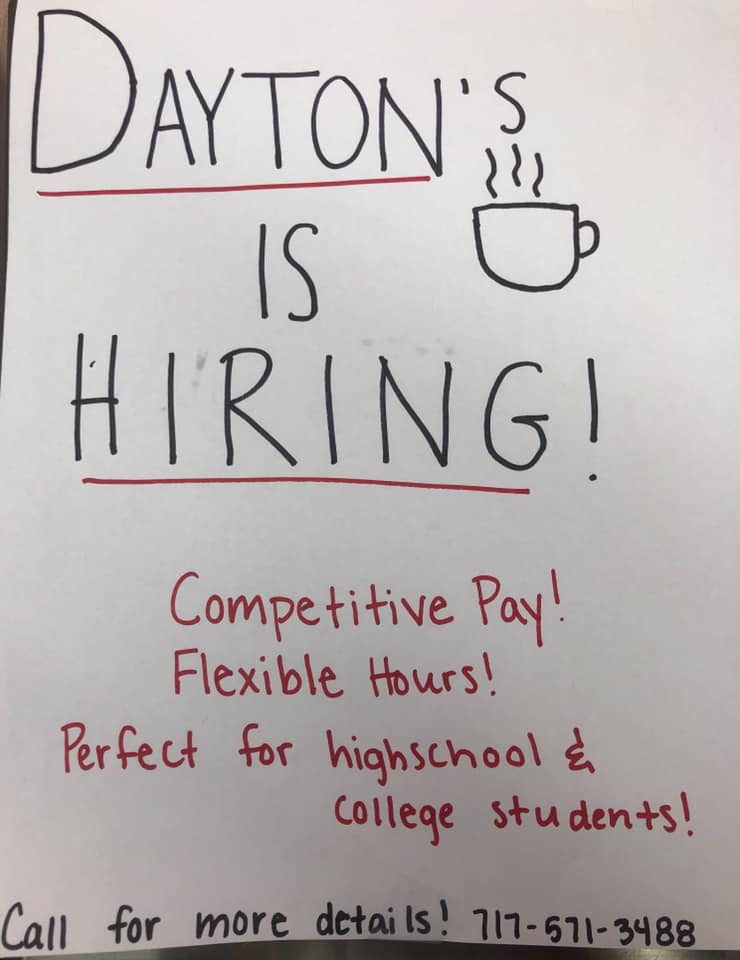 DAYTON'S
IS
HIRING!
Competitive Pay!
Flexible Hours!
Perfect for highschool &
college students!
Call for more details! 717-571-3488